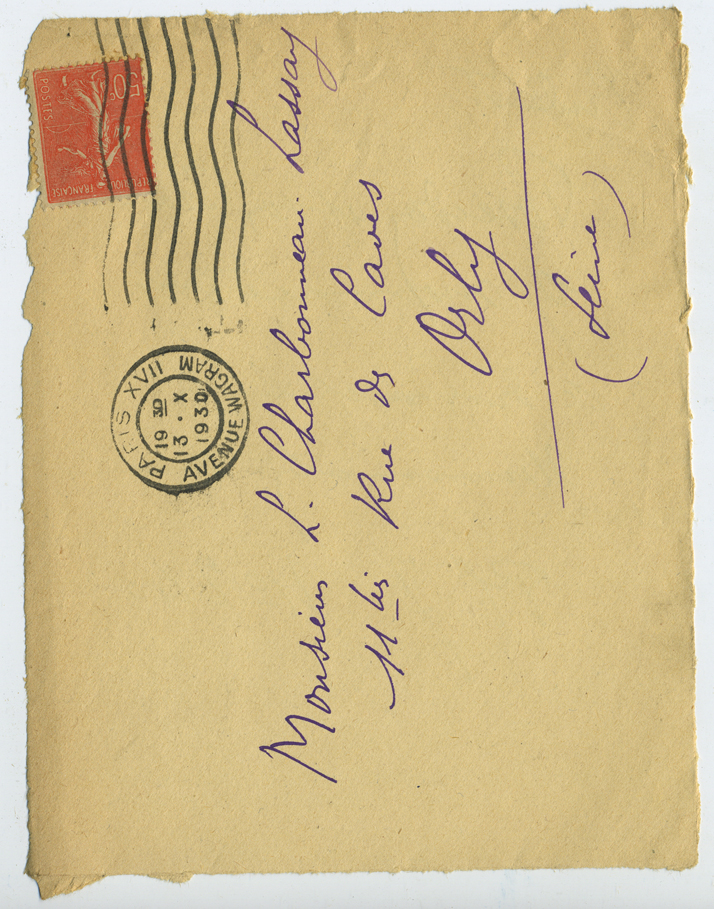 50c
POSTES
RÉPUBLIQUE FRANÇAISE
PARIS XVII
19 30
13 • X
1930
AVENUE WAGRAM
Monsieur L. Charbonneau-Lassay
11 bis Rue des Caves
Orly
(Seine)